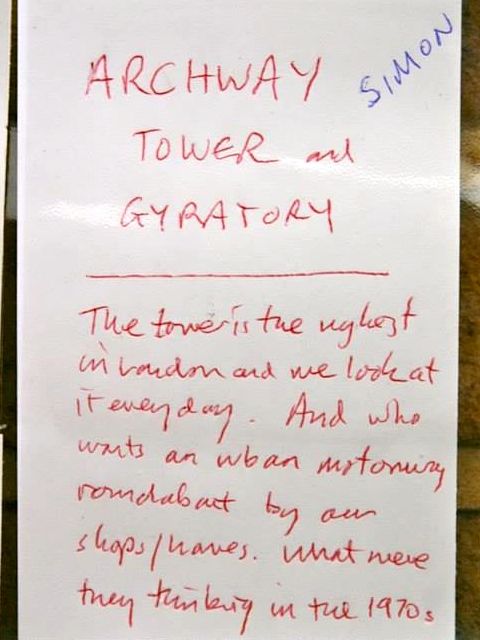 SIMON
ARCHWAY
TOWER and
GYRATORY
The tower is the ugliest
in London and we look at
it every day. And who
wants an urban motorway
roundabout by our
shops/homes. What were
they thinking in the 1970s